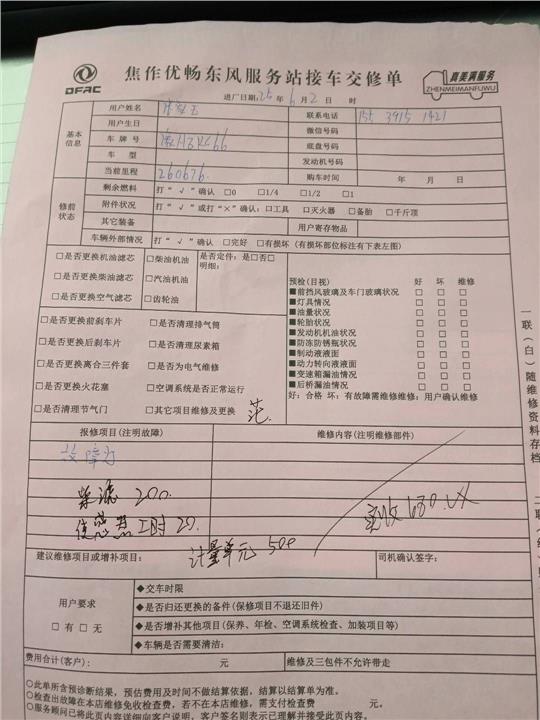 DFAC
焦作优畅东风服务站接车交修单
真美满服务
ZHENMEIMANFUWU
进厂日期:25年6月2日 时
基本信息
用户姓名 联系电话 155 3915 1421
用户生日 微信号码
车 牌 号 底盘号码
车 型 发动机号码
当前里程 260676. 购车时间 年 月 日
修前状态
剩余燃料 打“√”确认 □0 □1/4 □1/2 □1
附件状况 打“√”或打“×”确认:□工具 □灭火器 □备胎 □千斤顶
其它装备 用户寄存物品
车辆外部情况 打“√”确认 □完好 □有损坏(有损坏部位标注有下表左图)
□是否更换机油滤芯 □柴油机油 是否定件:是□否□
□是否更换柴油滤芯 □汽油机油 明细:
□是否更换空气滤芯 □齿轮油
□是否更换前刹车片 □是否清理排气筒
□是否更换后刹车片 □是否清理尿素箱
□是否更换离合三件套 □是否为电气维修
□是否更换火花塞 □空调系统是否正常运行
□是否清理节气门 □其它项目维修及更换
预检(目视) 好 坏 维修
■前挡风玻璃及车门玻璃状况 □ □ □
■灯具情况 □ □ □
■油量状况 □ □ □
■轮胎状况 □ □ □
■发动机机油状况 □ □ □
■防冻防锈瓶状况 □ □ □
■制动液液面 □ □ □
■动力转向液液面 □ □ □
■变速箱漏油情况 □ □ □
■后桥漏油情况 □ □ □
好:合格 坏:有故障需维修维修:用户确认维修
报修项目(注明故障) 维修内容(注明维修部件)
故障灯
柴滤 200.
传感器 工时 20.
计量单元 500
实收680.
建议维修项目或增补项目: 司机确认签字:
用户要求
□有 □无
◆交车时限
◆是否归还更换的备件(保修项目不退还旧件)
◆是否增补其他项目(保养、年检、空调系统检查、加装项目等)
◆车辆是否需要清洁:
费用合计(客户): 元 维修及三包件不允许带走
○此单所含预诊断结果,预估费用及时间不做结算依据,结算以结算单为准。
○检查出故障在本店维修免收检查费,若不在本店维修,需支付检查费 元。
○服务顾问已将此页内容详细向客户说明,客户签名则表示已理解并接受此页内容。
一联(白)随维修资料存档